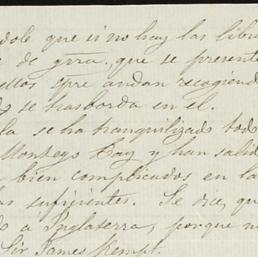 dole que si no hay las libr
de gũra. que se present
ellos spre andan recogiend
se trasborda en el.
la se ha tranquilizado todo
Montego Bay y han salid
bien complicados en la
suficientes. Se dice, qu
a Inglaterra, porque n
Sir James Kempt.